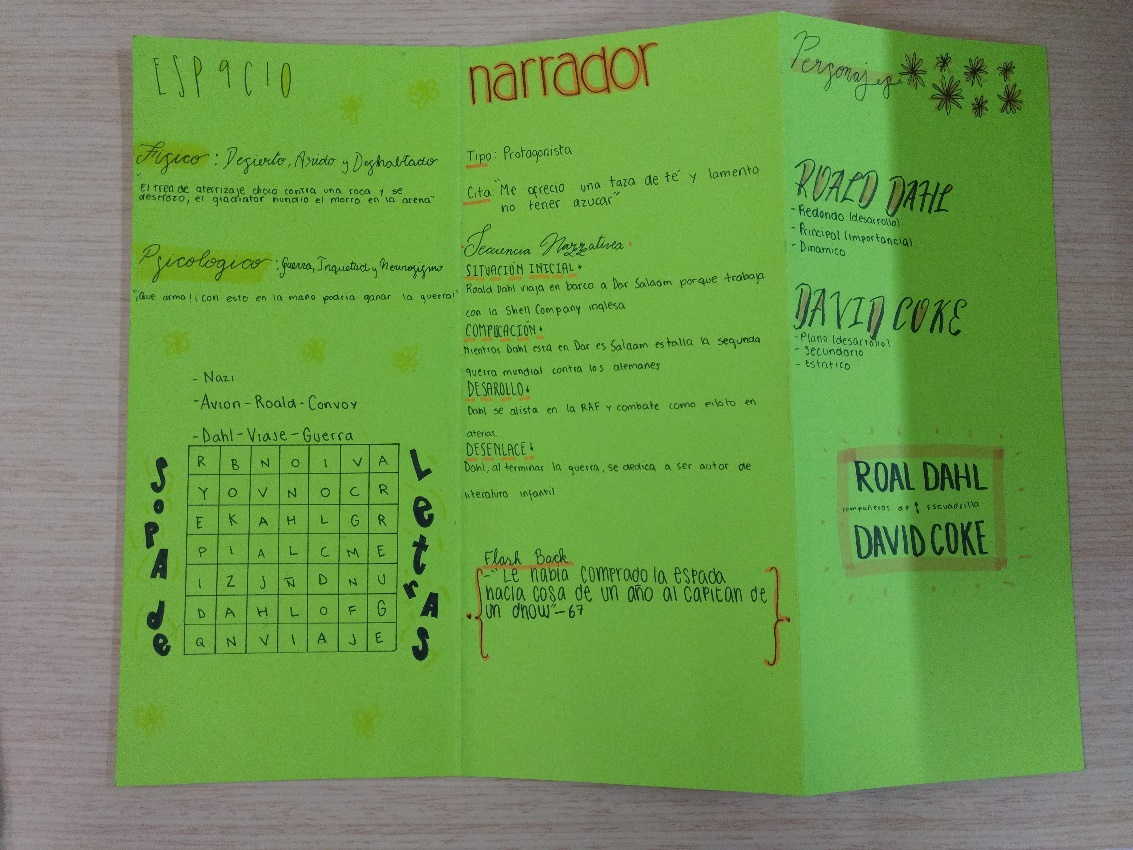 ESPACIO
Físico : Desierto, Arido y Deshabitado
"El tren de aterrizaje choco contra una roca y se
destrozo, el gladiator hundio el morro en la arena"
Psicologico : Guerra, Inquetud y Neurosismo
"¡Que arma!¡ con esto en la mano podria ganar la guerra!"
- Nazi
-Avion-Roald-Convoy
-Dahl-Viaje-Guerra
SoPA de
LetrAS
R B N O I V A
Y O V N O C R
E K A H L G R
P I A L C M E
I Z J Ñ D N U
D A H L O F G
Q N V I A J E
narrador
Tipo: Protagonista
Cita: "Me ofrecio una taza de té y lamento
no tener azucar"
Secuencia Narrativa
SITUACIÓN INICIAL
Roald Dahl viaja en barco a Dar Salaam porque trabaja
con la Shell Company inglesa
COMPLICACIÓN
Mientras Dahl esta en Dar es Salaam estalla la segunda
guerra mundial contra los alemanes
DESAROLLO
Dahl se alista en la RAF y combate como piloto en
atenas.
DESENLACE
Dahl, al terminar la guerra, se dedica a ser autor de
literatura infantil
Flash Back
-"Le habia comprado la espada
hacia cosa de un año al capitan de
un dhow"-67
Personajes
ROALD DAHL
- Redondo (desarrollo)
- Principal (importancia)
- Dinamico
DAVID COKE
- Plano (desarrollo)
- Secundario
- Estatico
ROAL DAHL
compañeros de : escuadrilla
DAVID COKE